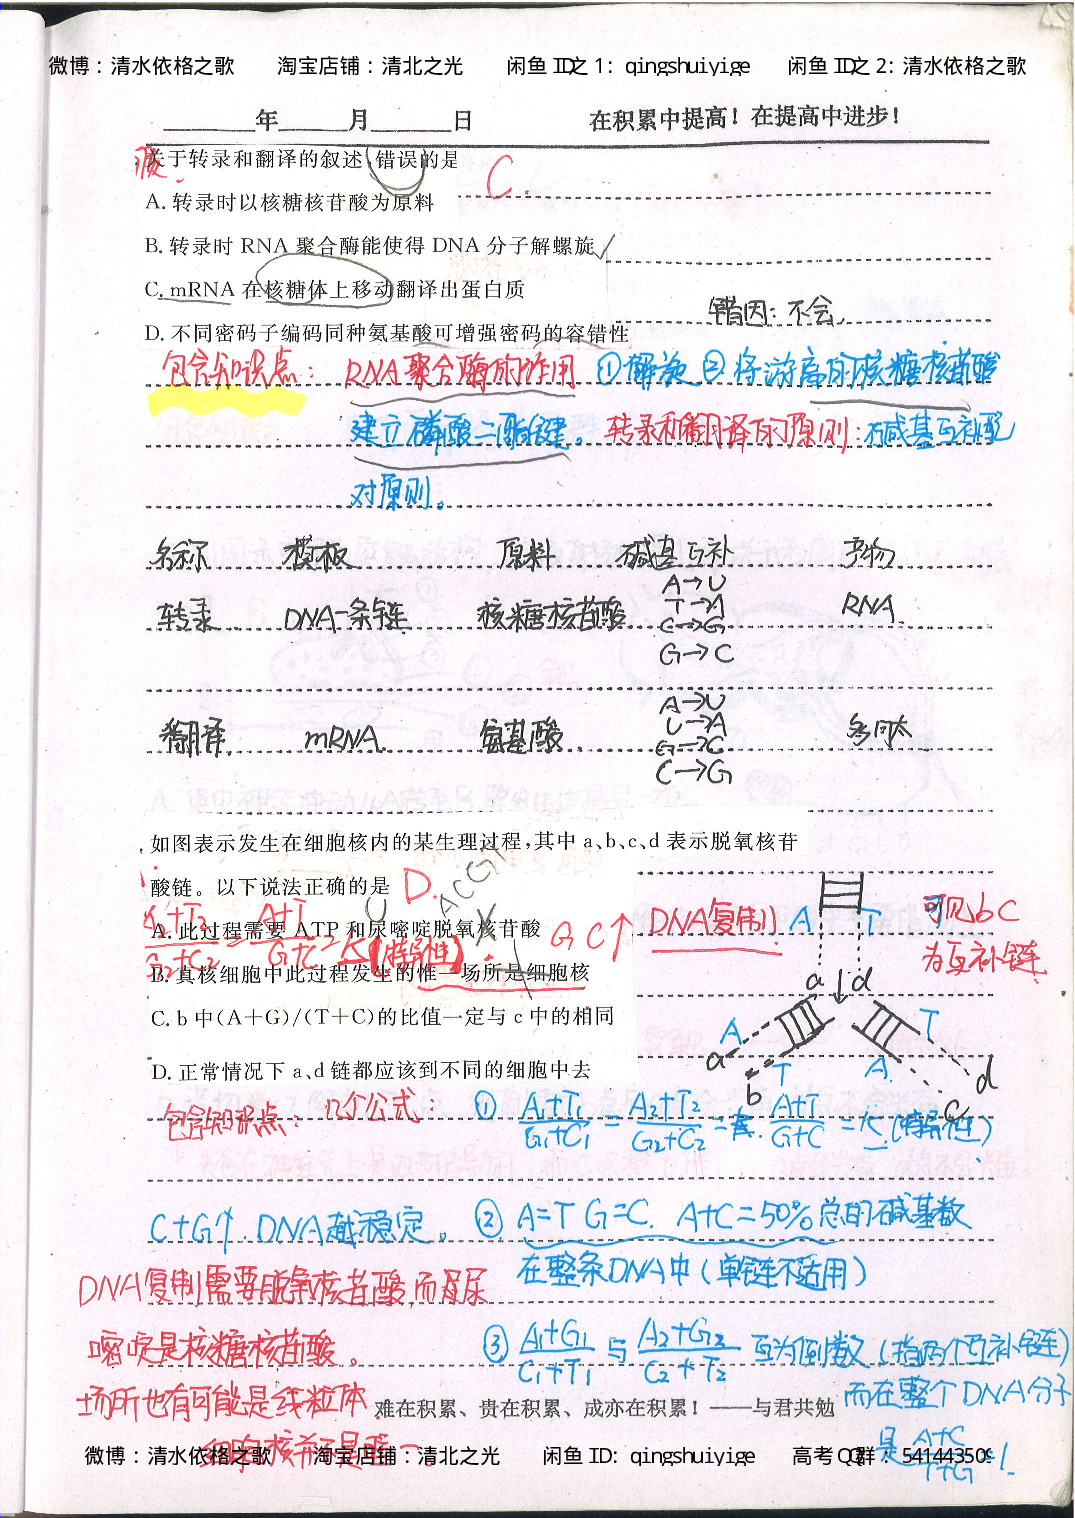 微博：清水依格之歌 淘宝店铺：清北之光 闲鱼ID之1：qingshuiyige 闲鱼ID之2：清水依格之歌
____年____月____日 在积累中提高！在提高中进步！
关于转录和翻译的叙述,错误的是 C.
A. 转录时以核糖核苷酸为原料
B. 转录时 RNA 聚合酶能使得 DNA 分子解螺旋
C. mRNA 在核糖体上移动翻译出蛋白质
错因：不会.
D. 不同密码子编码同种氨基酸可增强密码的容错性
包含知识点： RNA聚合酶的作用 ①解旋 ②将游离的核糖核苷酸
建立磷酸二酯键。转录和翻译的原则：碱基互补配
对原则。
名称 模板 原料 碱基互补 产物
转录 DNA一条链 核糖核苷酸 A→U T→A C→G G→C RNA
翻译 mRNA 氨基酸 A→U U→A G→C C→G 多肽
如图表示发生在细胞核内的某生理过程,其中 a、b、c、d 表示脱氧核苷
酸链。以下说法正确的是 D.
ACGT
A. 此过程需要 ATP 和尿嘧啶脱氧核苷酸
GC↑ DNA复制 A T 可见bC
为互补链
B. 真核细胞中此过程发生的惟一场所是细胞核
a d
C. b 中(A+G)/(T+C)的比值一定与 c 中的相同
A T
a
D. 正常情况下 a、d 链都应该到不同的细胞中去
b T A c d
包含知识点：几个公式： ① A₁+T₁/G₁+C₁ = A₂+T₂/G₂+C₂ = A+T/G+C = K (特异性)
C+G↑. DNA越稳定。 ② A=T G=C. A+C=50%总的碱基数
在整条DNA中（单链不适用）
DNA复制需要脱氧核苷酸,而尿
嘧啶是核糖核苷酸。 ③ A₁+G₁/C₁+T₁ 与 A₂+G₂/C₂+T₂ 互为倒数（指两个互补链）
场所也有可能是线粒体 而在整个DNA分子
难在积累、贵在积累、成亦在积累！——与君共勉
细胞核并不是唯一. 是 A+C/T+G =1.
微博：清水依格之歌 淘宝店铺：清北之光 闲鱼ID：qingshuiyige 高考QQ群：541443509